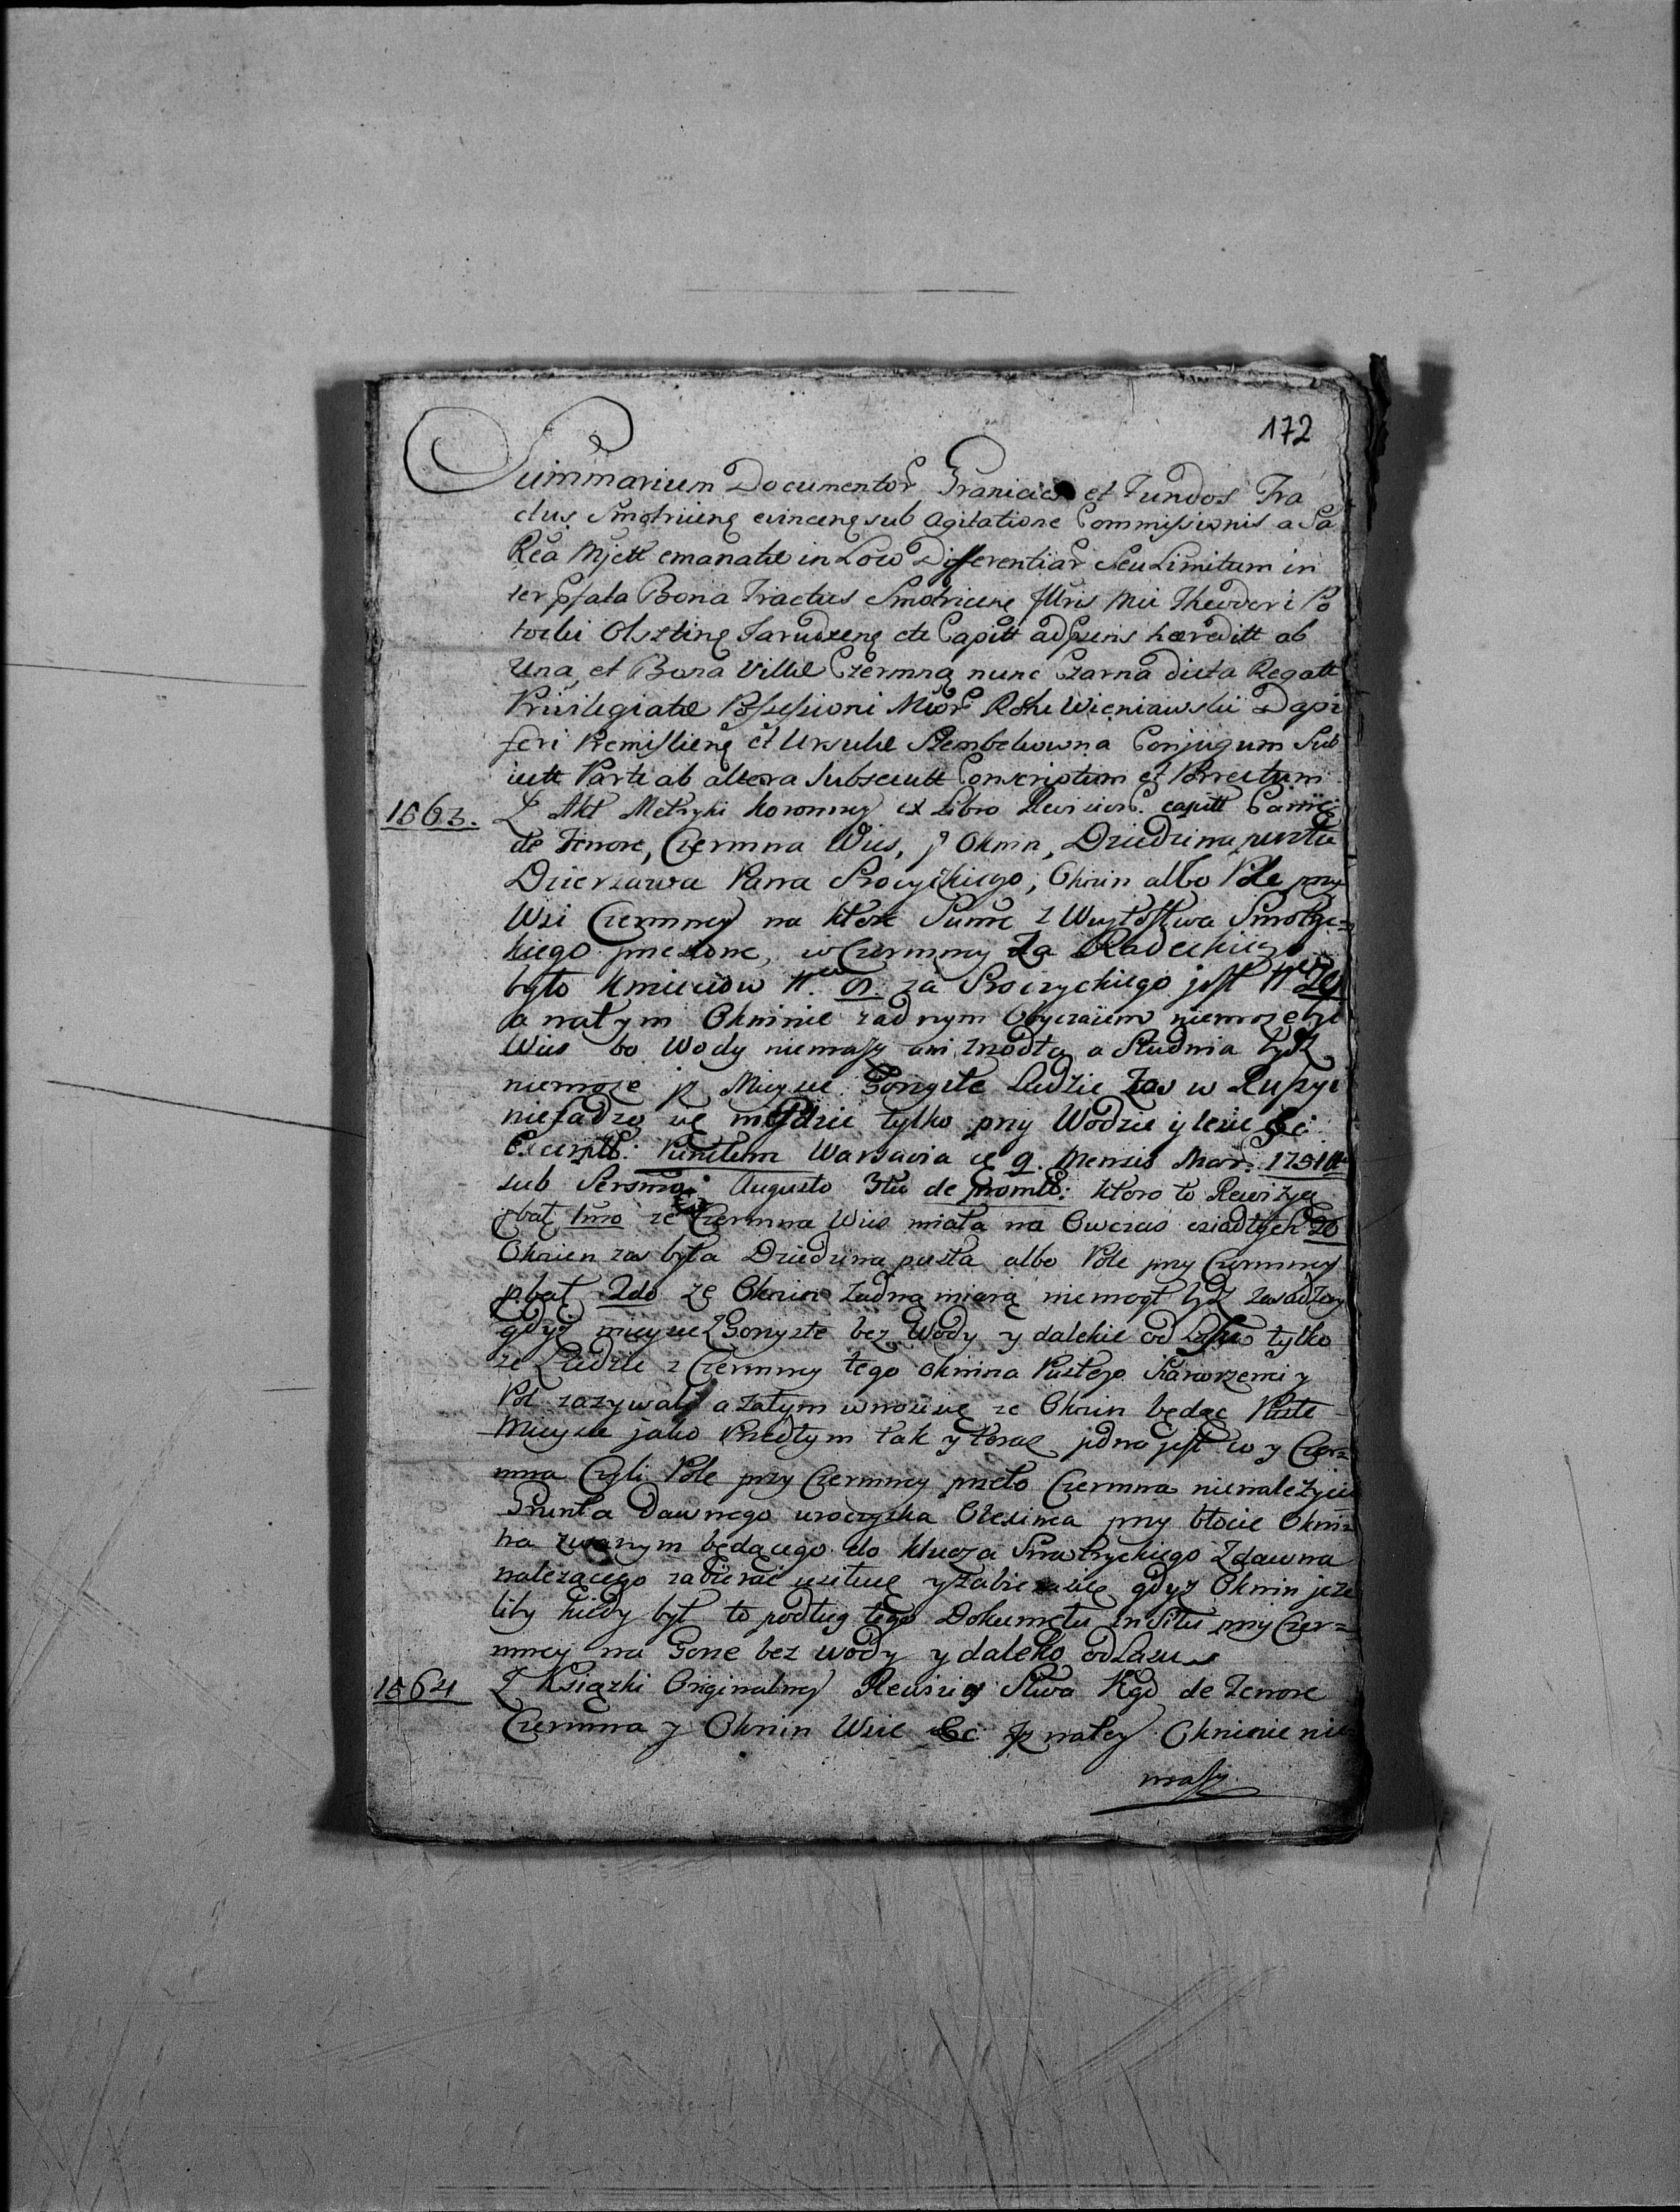 172
Summarium Documentor Granicies et Fundos Tra
ctus Smotricens evincens sub Agitatione Commissionis a Sa
Rea Mjett emanatæ in Loco Differentiar Seu Limitum in
ter pfata Bona Tractus Smotricens Illris Mci Theodori Po
tocki Olsztins Tarudzens ctt Capitt ad psens hæreditt ab
Una, et Bona Villæ Czermna nunc Czarna dicta Regall
Privilegiatæ Possessioni Mcor Rohi Wieniawski Dapi
feri Premisliens et Ursulæ Stembekowna Conjugum Sub
jectt Parte ab altera Subsecutt Conscriptum et Porrectum
1563. Z Akt Metryki Koronney ex Libro Capitt
de Tenore, Czermna Wies, y Oknin, Dziedzina puszta
Dzierzawa Pana Proczyckiego, Oknin albo Pole przy
Wsi Czermney na ktore Summe z Wuytostwa Smotryc=
kiego przeniesione, w Czermny Za Radeckiego
było Kmieciow N. za Proczyckiego jest N 20
a natym Okninie zadnym Obyczaiem niemoze bydz
Wies bo Wody niemasz ani zrodła, a Studnia bydz
niemoze jz Mieysce Gorzyste Ludzie Zas w Ruszyi
niesadzo się nigdzie tylko przy Wodzie y lesie &c
Excerptt: Punctum Warsavia die 9. Mensis Mar. 1751
sub Sersmo Augusto 3tio de promtt: ktoro to Rewizyą
pbat 1mo ze Czermna Wies miała na Owczas osiadłych 20
Oknien zas była Dziedzina pusta albo Pole przy Czermney
pbat 2do ze Oknin zadną miarą niemogł bydz zasadzony
gdyz mieysce Gorzyste bez Wody y dalekie od Lasu tylko
ze Ludzie z Czermny tego Oknina Pustego Stanowzenia y
Pol zazywali a zatym wnosi się ze Oknin będąc Puste
Mieysce jako Przedtym tak y teraz jedno jest co y Czer=
mna Czyli Pole przy Czermney przeto Czermna nienalezycie
Grunta Dawnego uroczyska Olesinca przy błocie Okni=
na zwanym będącego do klucza Smotryckiego Zdawna
nalezącego zabierać usiłuię y zabieraię gdyz Oknin jeze
liby kiedy był to podług tego Dokumętu in Situ przy Czer=
mney na Gorze bez wody y daleko od Lasu
1564 Z Ksiązki Originalney Rewizyi Stwa Kgo de Tenore
Czermna y Oknin Wsie &c Jz natey Okninie nie
masz.